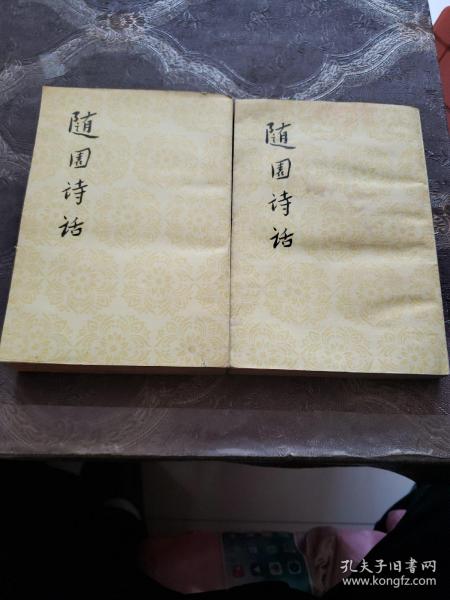 随园诗话
随园诗话
孔夫子旧书网
www.kongfz.com